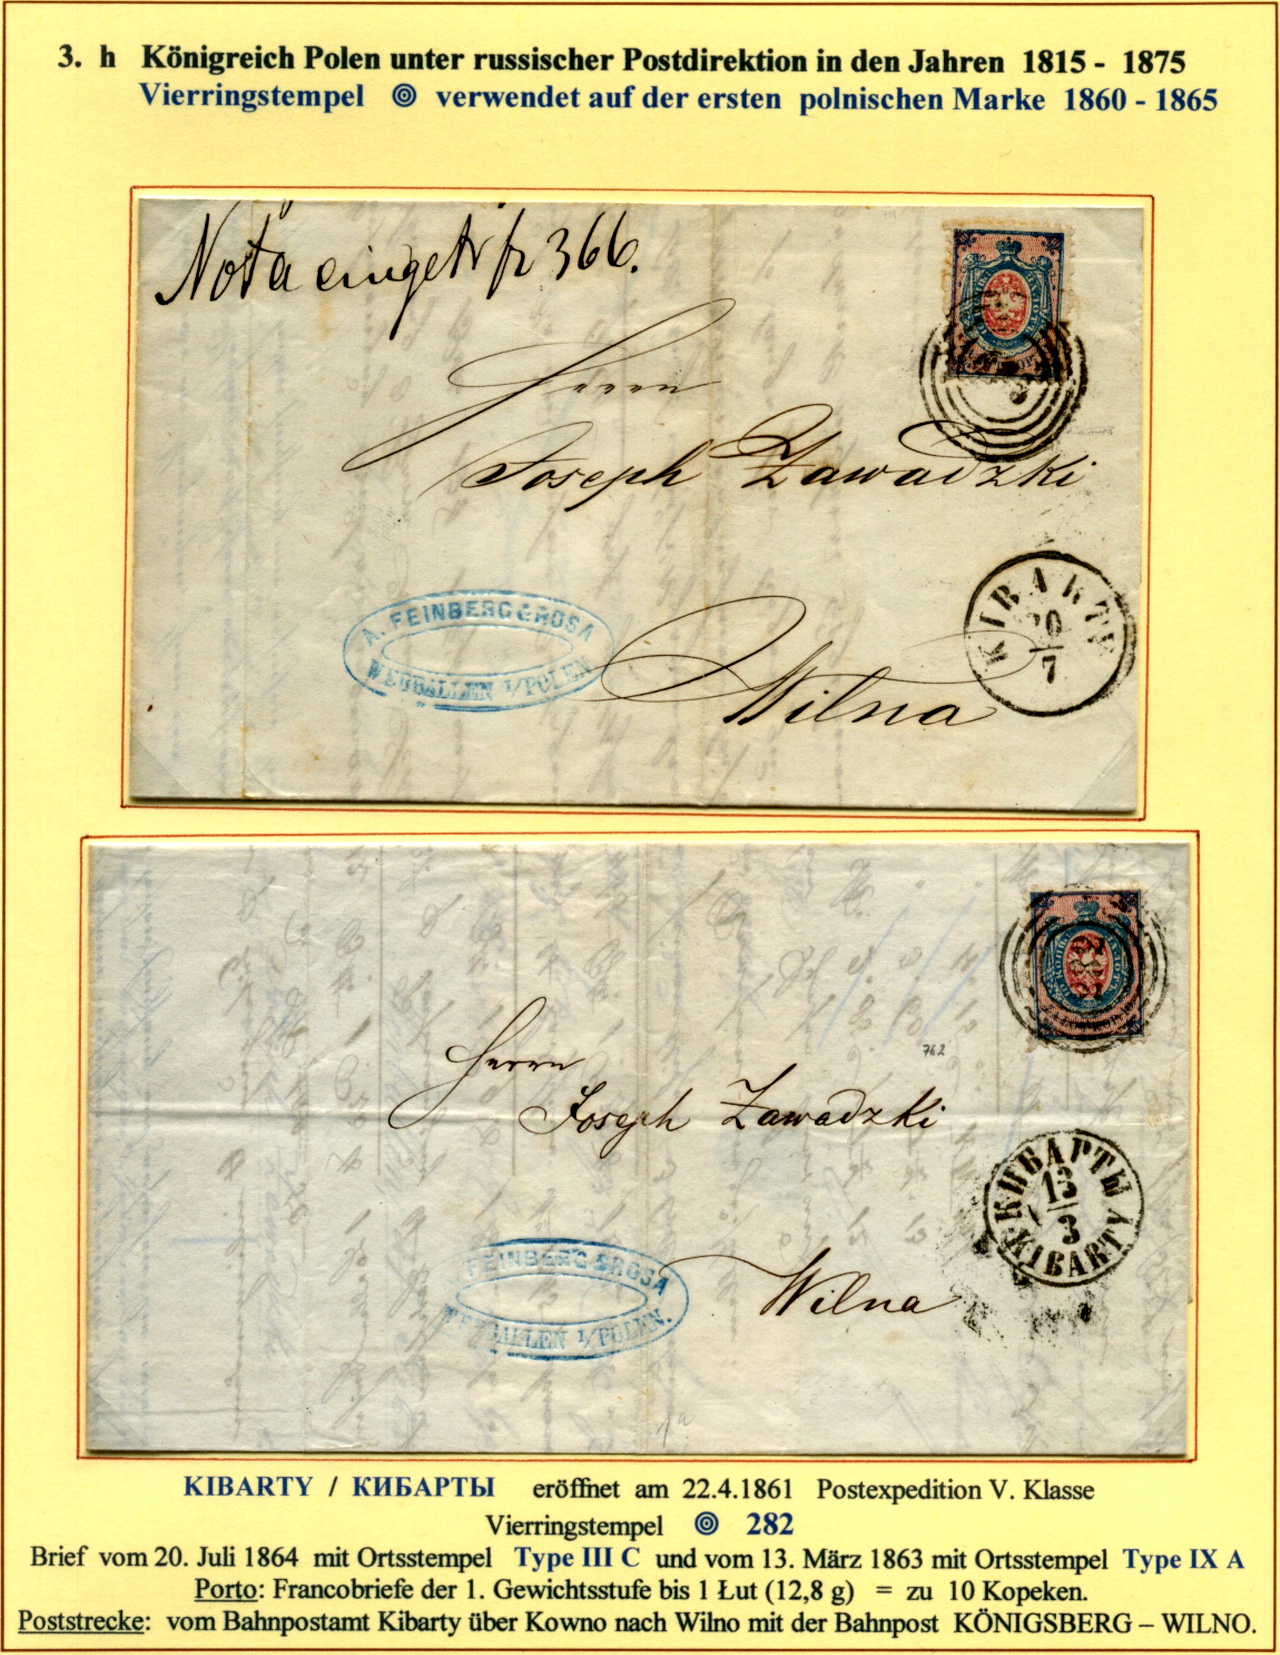 3. h Königreich Polen unter russischer Postdirektion in den Jahren 1815 - 1875
Vierringstempel verwendet auf der ersten polnischen Marke 1860 - 1865
Nota eingetr fr 366.
Herrn
Joseph Zawadzki
A. FEINBERG & ROSA
WERBALLEN I/POLEN
KIBARTY
20
7
Wilna
282
762
Herrn
Joseph Zawadzki
КИБАРТЫ
13
3
KIBARTY
FEINBERG & ROSA
WERBALLEN I/POLEN.
Wilna
KIBARTY / КИБАРТЫ eröffnet am 22.4.1861 Postexpedition V. Klasse
Vierringstempel 282
Brief vom 20. Juli 1864 mit Ortsstempel Type III C und vom 13. März 1863 mit Ortsstempel Type IX A
Porto: Francobriefe der 1. Gewichtsstufe bis 1 Łut (12,8 g) = zu 10 Kopeken.
Poststrecke: vom Bahnpostamt Kibarty über Kowno nach Wilno mit der Bahnpost KÖNIGSBERG – WILNO.